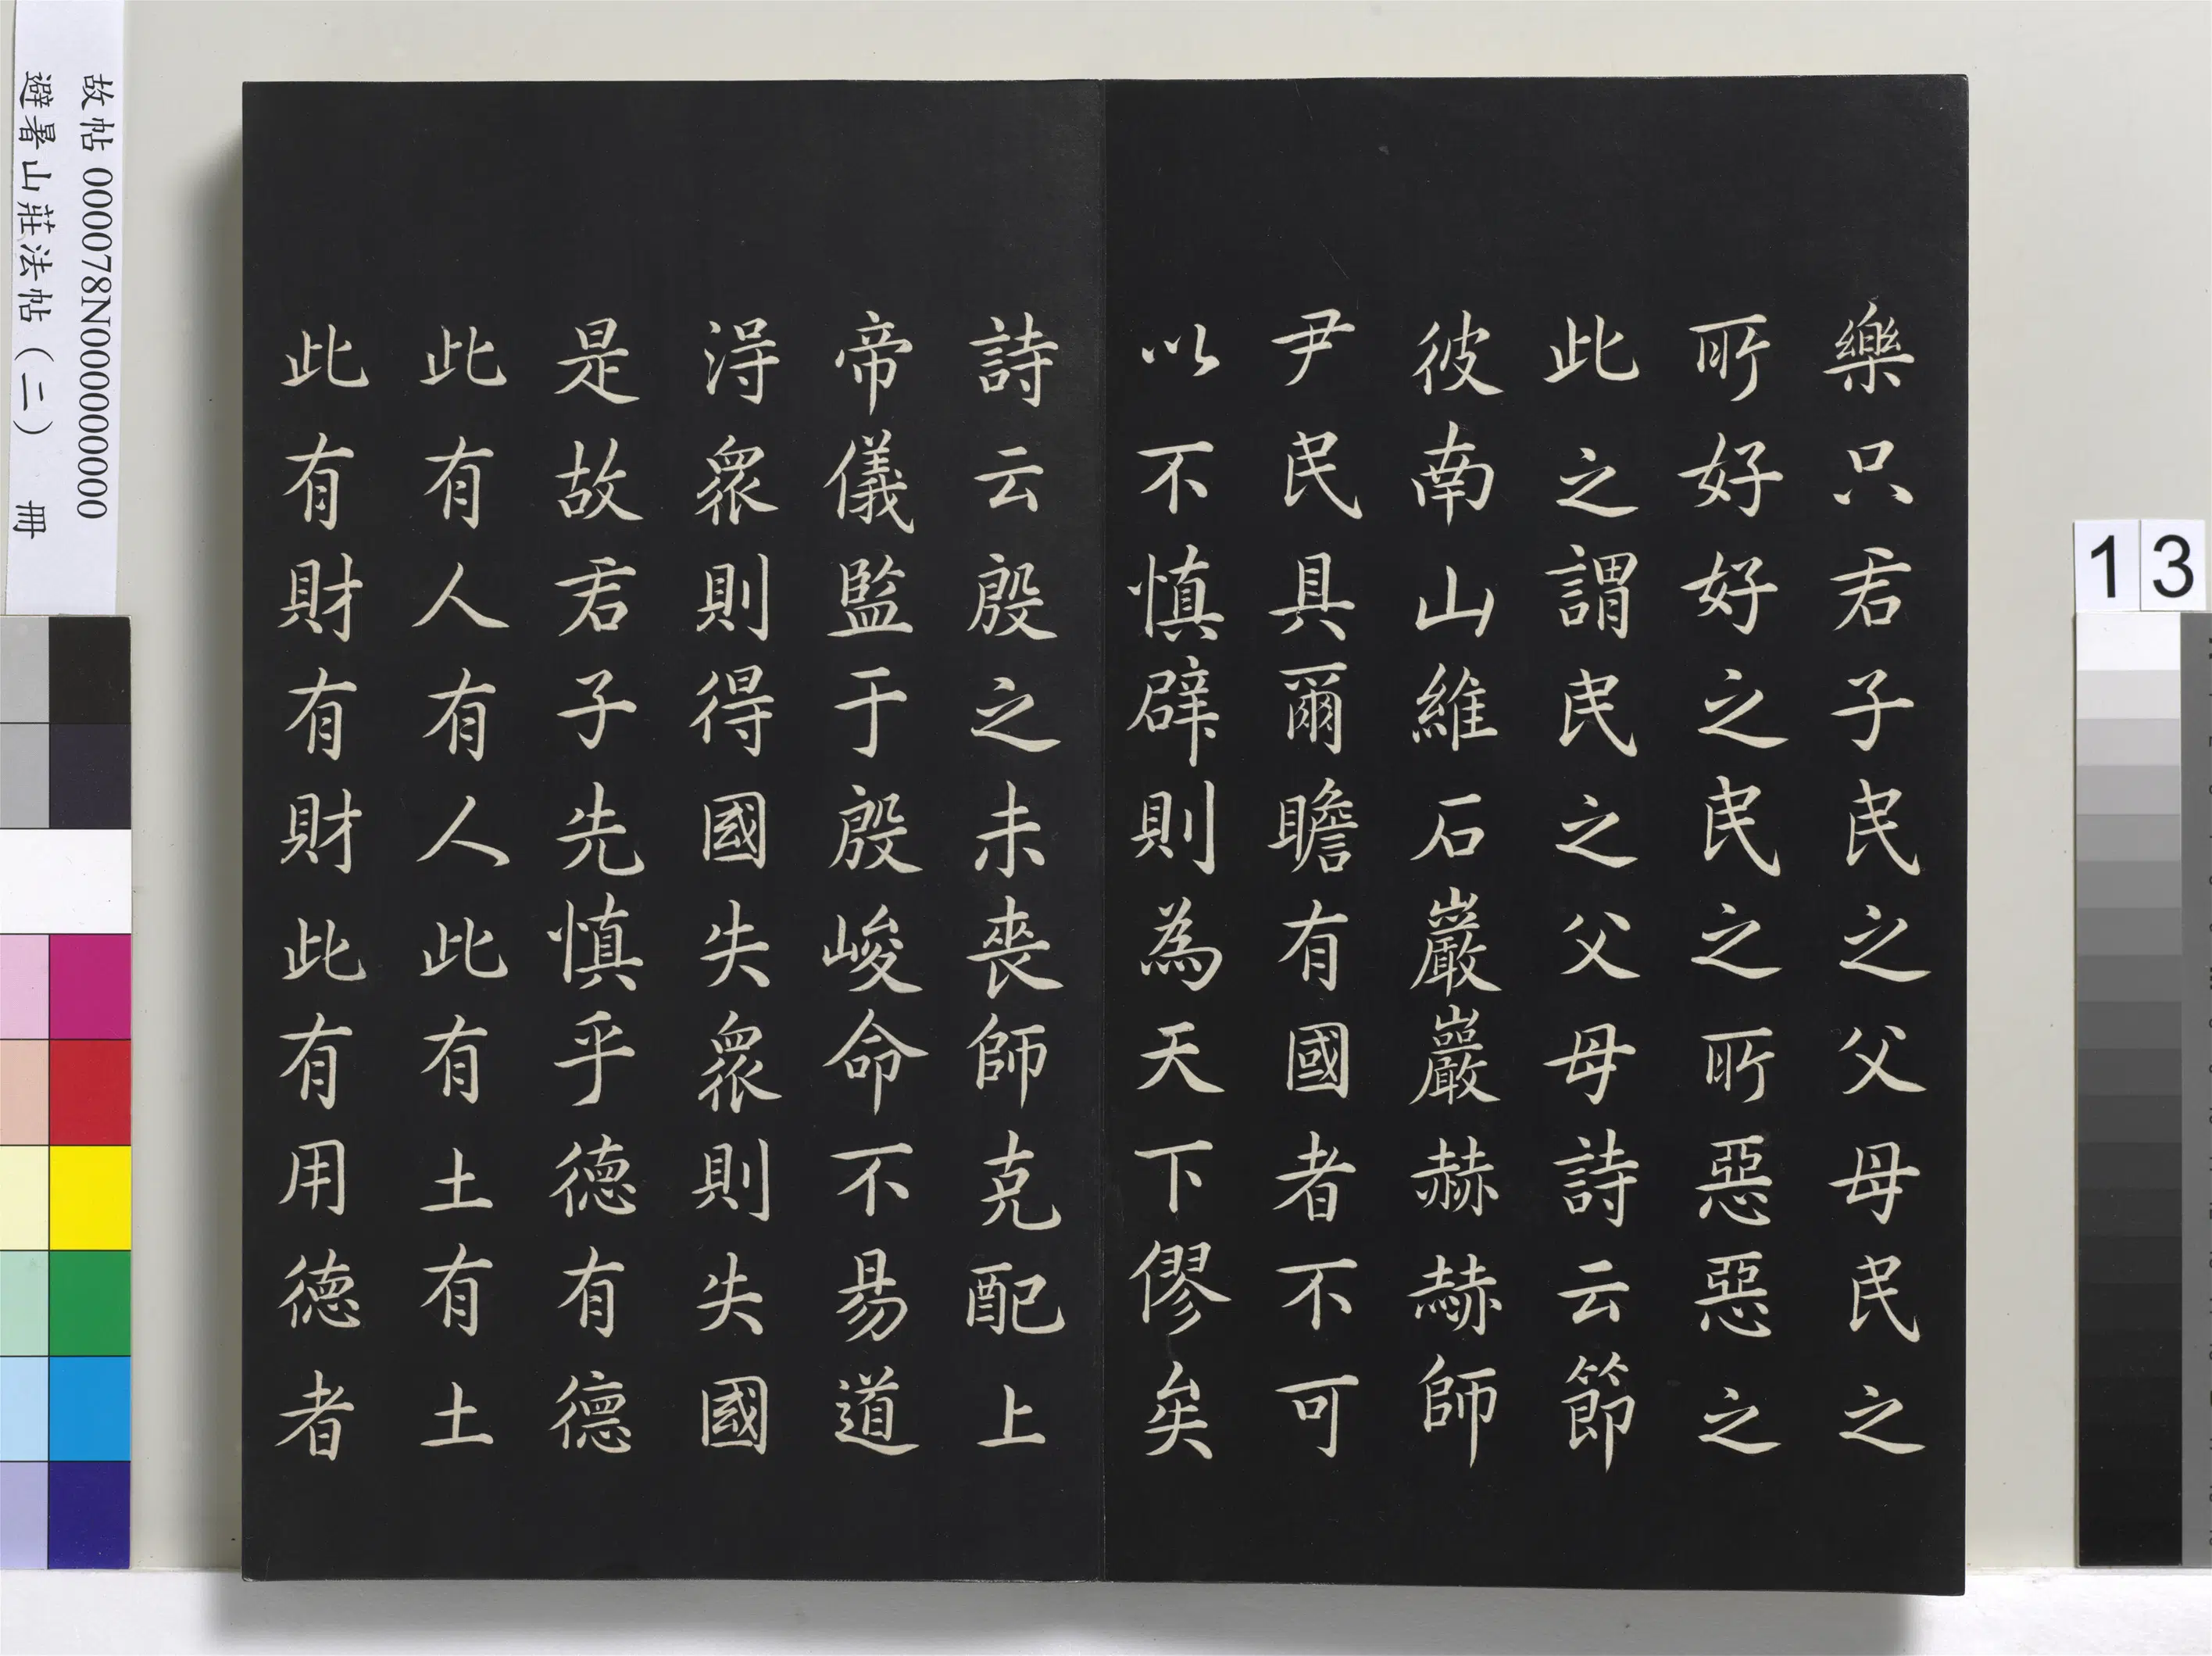 樂只君子民之父母民之
所好好之民之所惡惡之
此之謂民之父母詩云節
彼南山維石巖巖赫赫師
尹民具爾瞻有國者不可
以不慎辟則為天下僇矣
詩云殷之未喪師克配上
帝儀監于殷峻命不易道
淂眾則得國失眾則失國
是故君子先慎乎德有德
此有人有人此有土有土
此有財有財此有用德者
故帖 000078N000000000
避暑山莊法帖(二) 冊
13